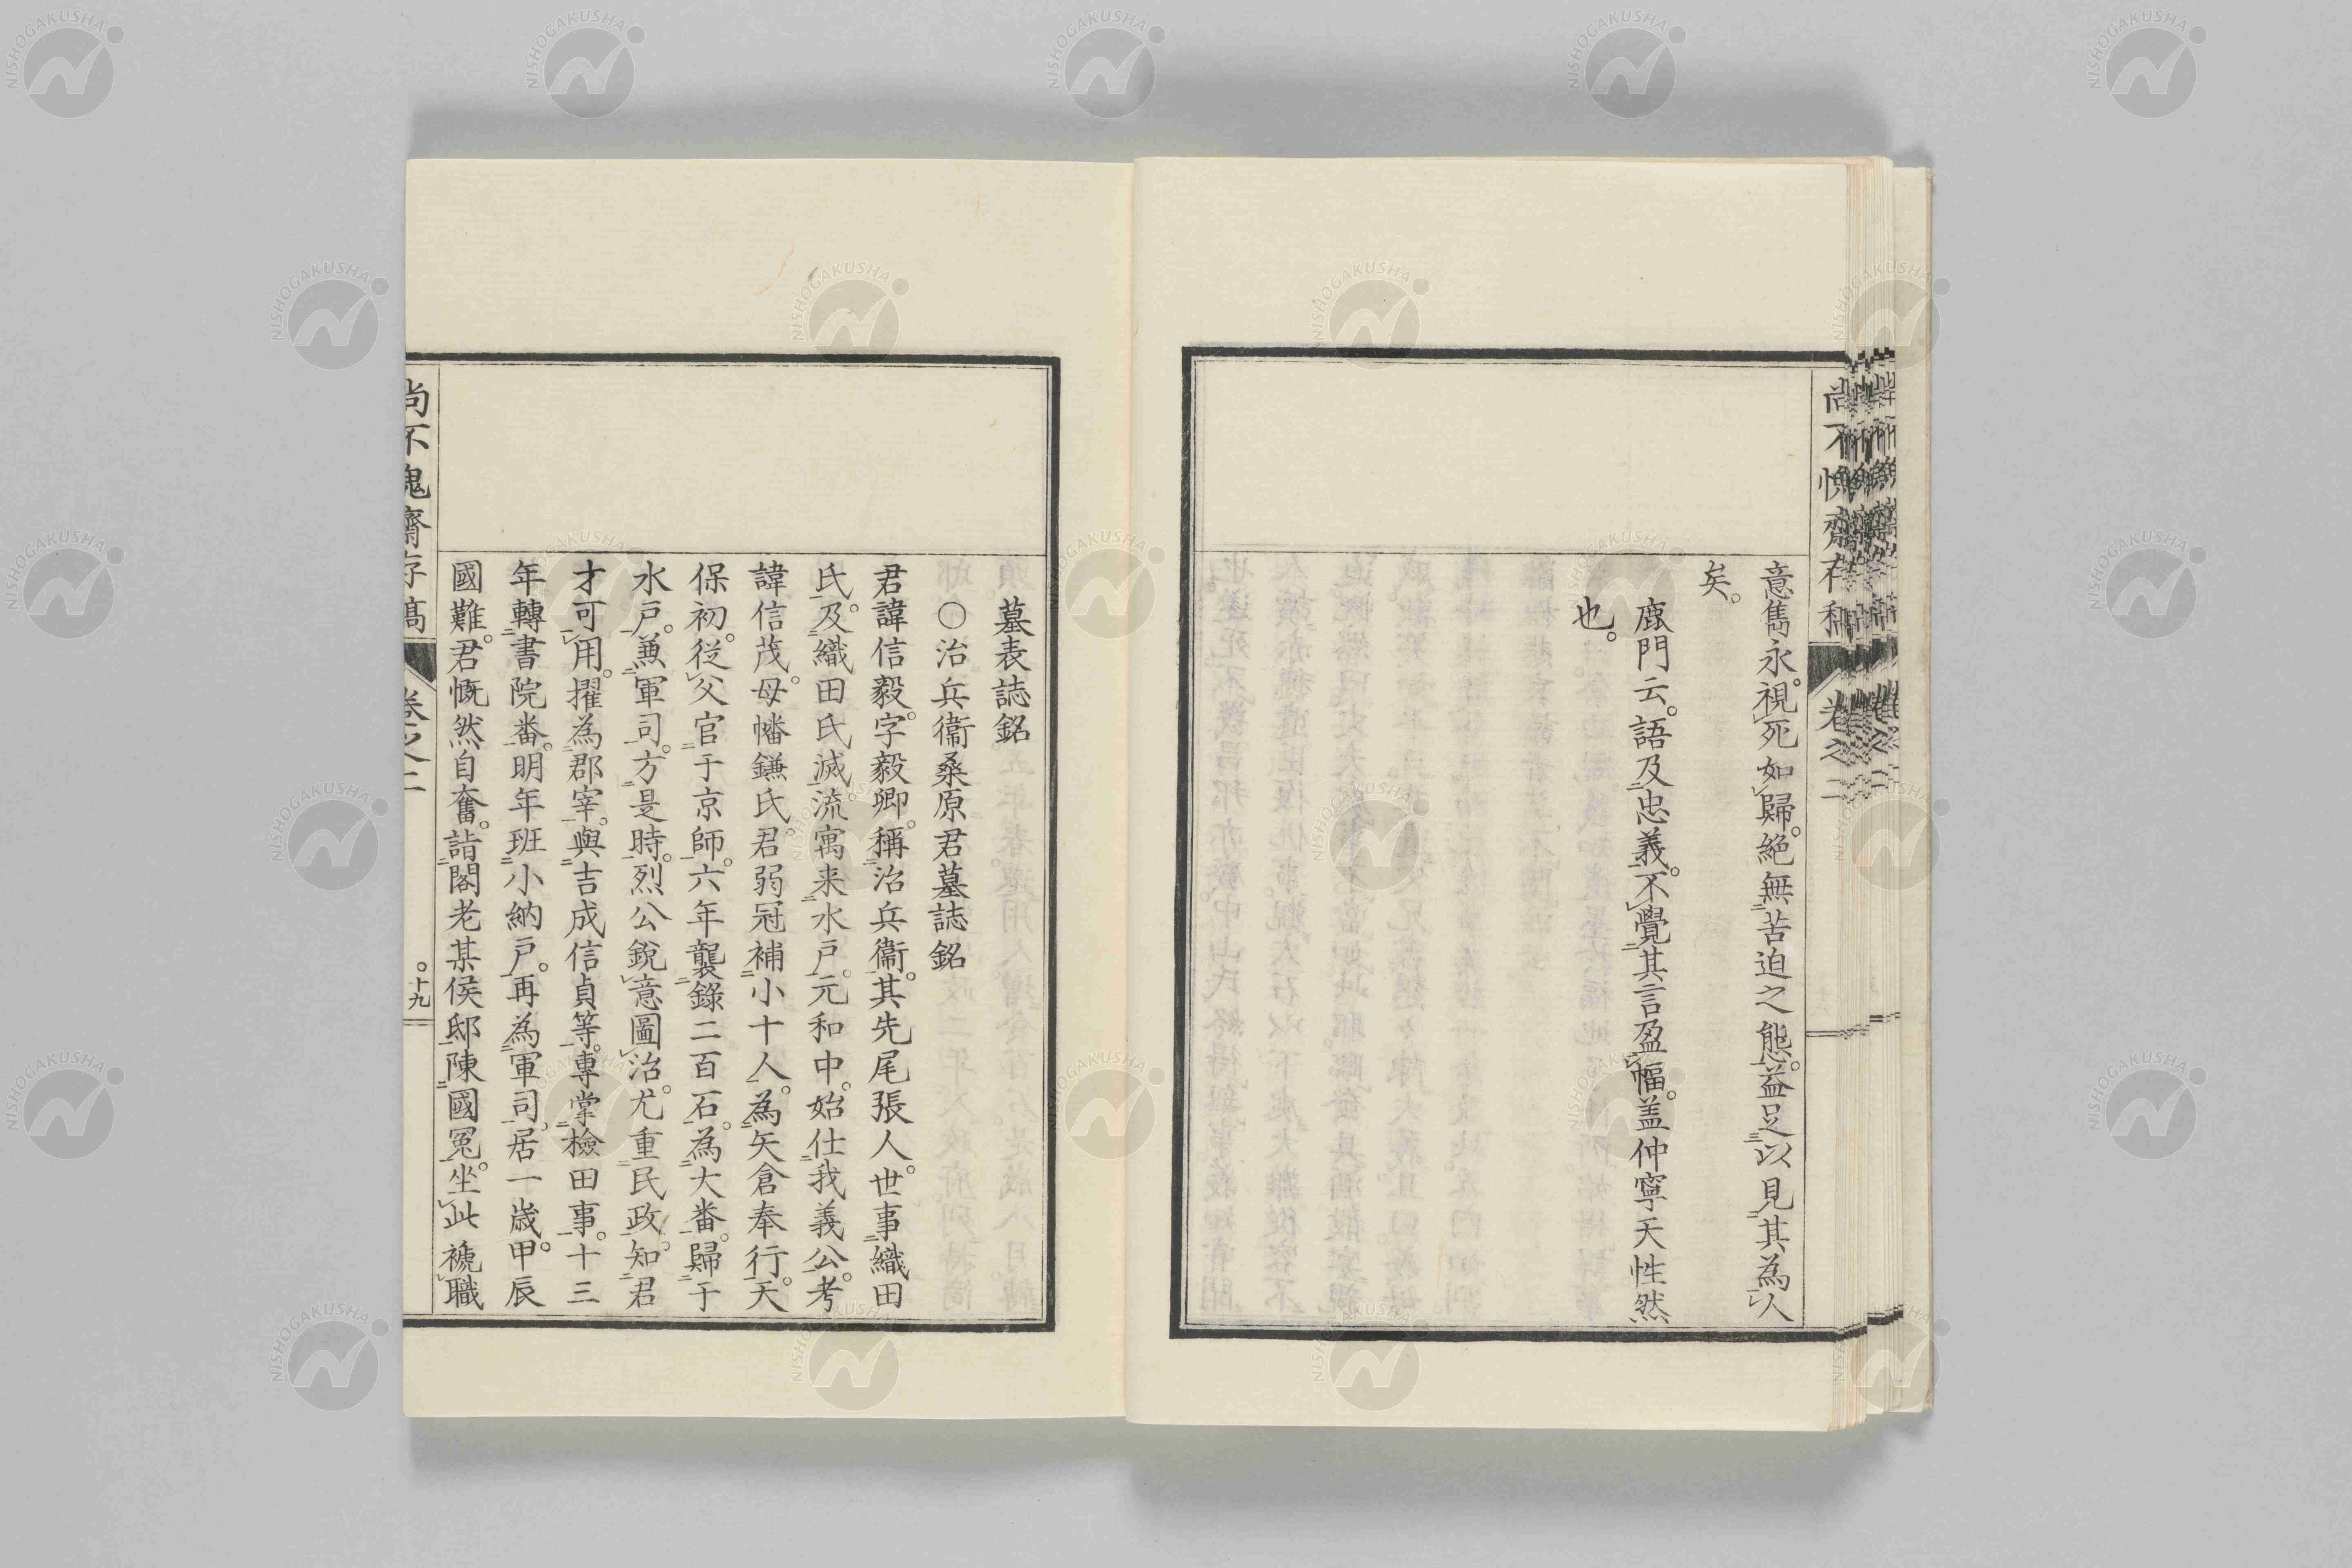 尚不愧齋存稿 卷之二
意雋永。視死如歸。絕無苦迫之態。益足以見其為人
矣。
鹿門云。語及忠義。不覺其言盈幅。盖仲寧天性然
也。
墓表誌銘
○治兵衞桑原君墓誌銘
君諱信毅。字毅卿。稱治兵衞。其先尾張人。世事織田
氏。及織田氏滅。流寓来水戶。元和中。始仕我義公。考
諱信茂。母幡鎌氏。君弱冠補小十人。為矢倉奉行。天
保初。從父官于京師。六年襲錄二百石。為大番。歸于
水戶。兼軍司。方是時。烈公銳意圖治。尤重民政。知君
才可用。擢為郡宰。與吉成信貞等。專掌檢田事。十三
年轉書院番。明年班小納戶。再為軍司。居一歲。甲辰
國難。君慨然自奮。詣閣老某侯邸。陳國冤。坐此褫職
尚不愧齋存稿 卷之二 十九
NISHOGAKUSHA